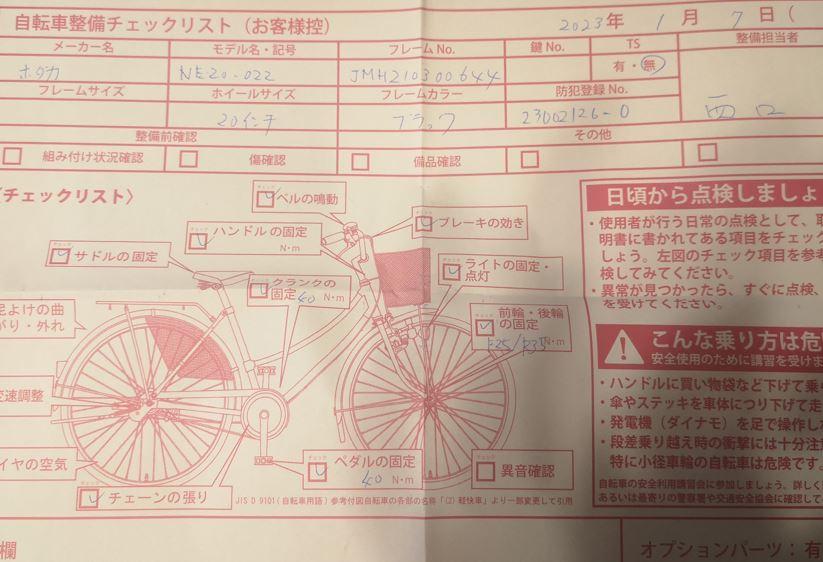 自転車整備チェックリスト（お客様控） 2023年 1月 7日（
メーカー名 モデル名・記号 フレームNo. 鍵No. TS 整備担当者
ホダカ NE20-022 JMH210300644 有・無
フレームサイズ ホイールサイズ フレームカラー 防犯登録No.
20インチ ブラック 23002126-0 西口
整備前確認 その他
組み付け状況確認 傷確認 備品確認
チェックリスト〉
ベルの鳴動
ハンドルの固定
N・m
ブレーキの効き
サドルの固定
クランクの
固定 40 N・m
ライトの固定・
点灯
泥よけの曲
がり・外れ
前輪・後輪
の固定
F25/R35 N・m
変速調整
イヤの空気
チェーンの張り
ペダルの固定
40 N・m
異音確認
JIS D 9101（自転車用語）参考付図自転車の各部の名称「(2) 軽快車」より一部変更して引用
日頃から点検しましょ
・使用者が行う日常の点検として、取
明書に書かれてある項目をチェック
しょう。左図のチェック項目を参考
検してみてください。
・異常が見つかったら、すぐに点検、
を受けてください。
こんな乗り方は危
安全使用のために講習を受けま
・ハンドルに買い物袋など下げて乗
・傘やステッキを車体につり下げて走
・発電機（ダイナモ）を足で操作し
・段差乗り越え時の衝撃には十分注
特に小径車輪の自転車は危険です。
自転車の安全利用講習会に参加しましょう。詳しく
あるいは最寄りの警察署や交通安全協会に確認して
欄
オプションパーツ：有